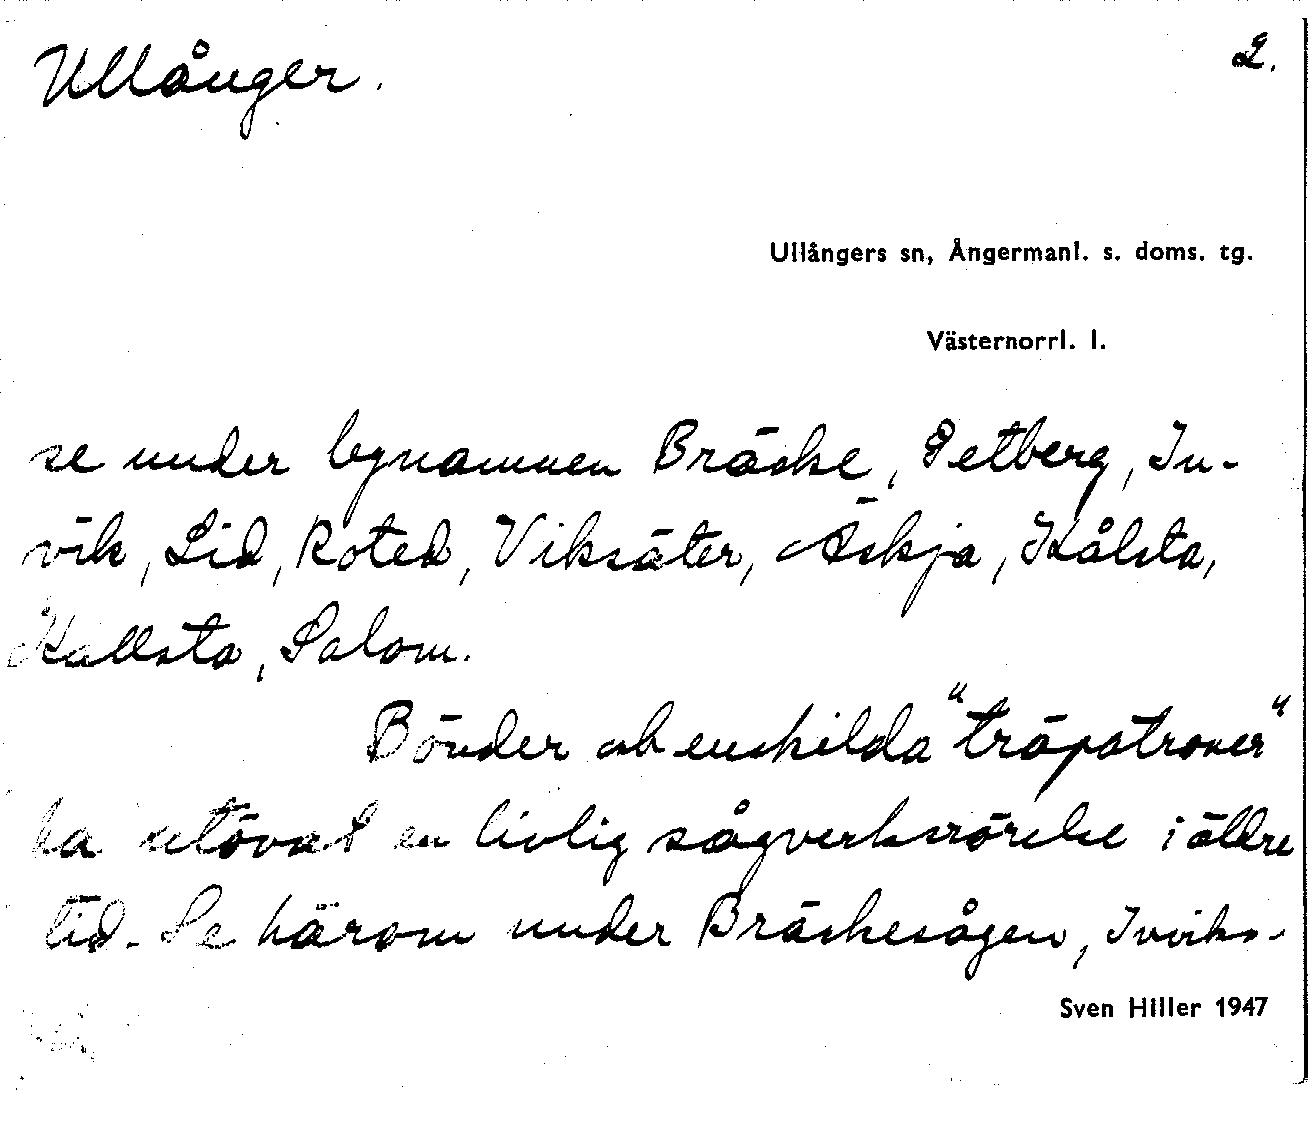 Ullånger.
2.
Ullångers sn, Ångermanl. s. doms. tg.
Västernorrl. l.
se under bynamnen Bräcke, Getberg, In-
vik, Lid, Roted, Viksäter, Äskja, Kålsta,
Kallsta, Salom.
Bönder och enskilda "träpatroner"
ha utövat en livlig sågverksrörelse i äldre
tid. Se härom under Bräckesågen, Inviks-
Sven Hiller 1947